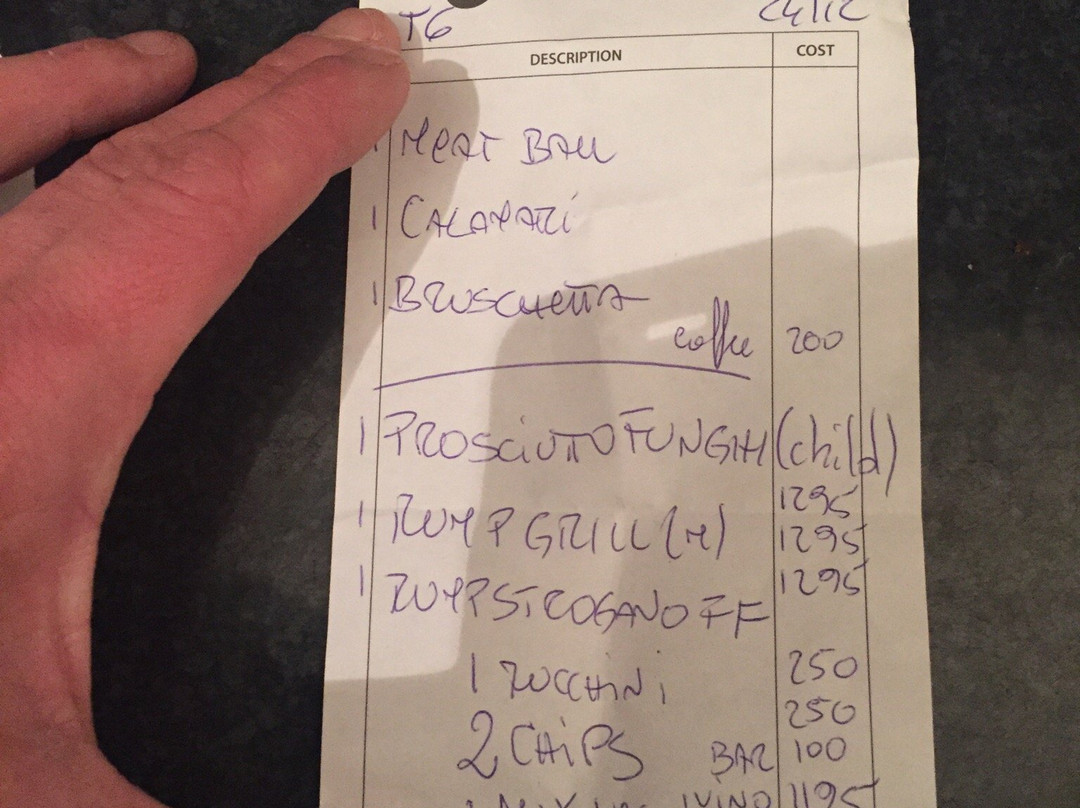 T6 24/12
DESCRIPTION COST
1 MEAT BALL
1 CALAMARI
1 BRUSCHETTA
coffee 200
1 PROSCIUTTO FUNGHI (child)
1295
1 RUMP GRILL (M) 1295
1 RUMP STROGANOFF 1295
1 ZUCCHINI 250
250
2 CHIPS BAR 100
VINO 1195